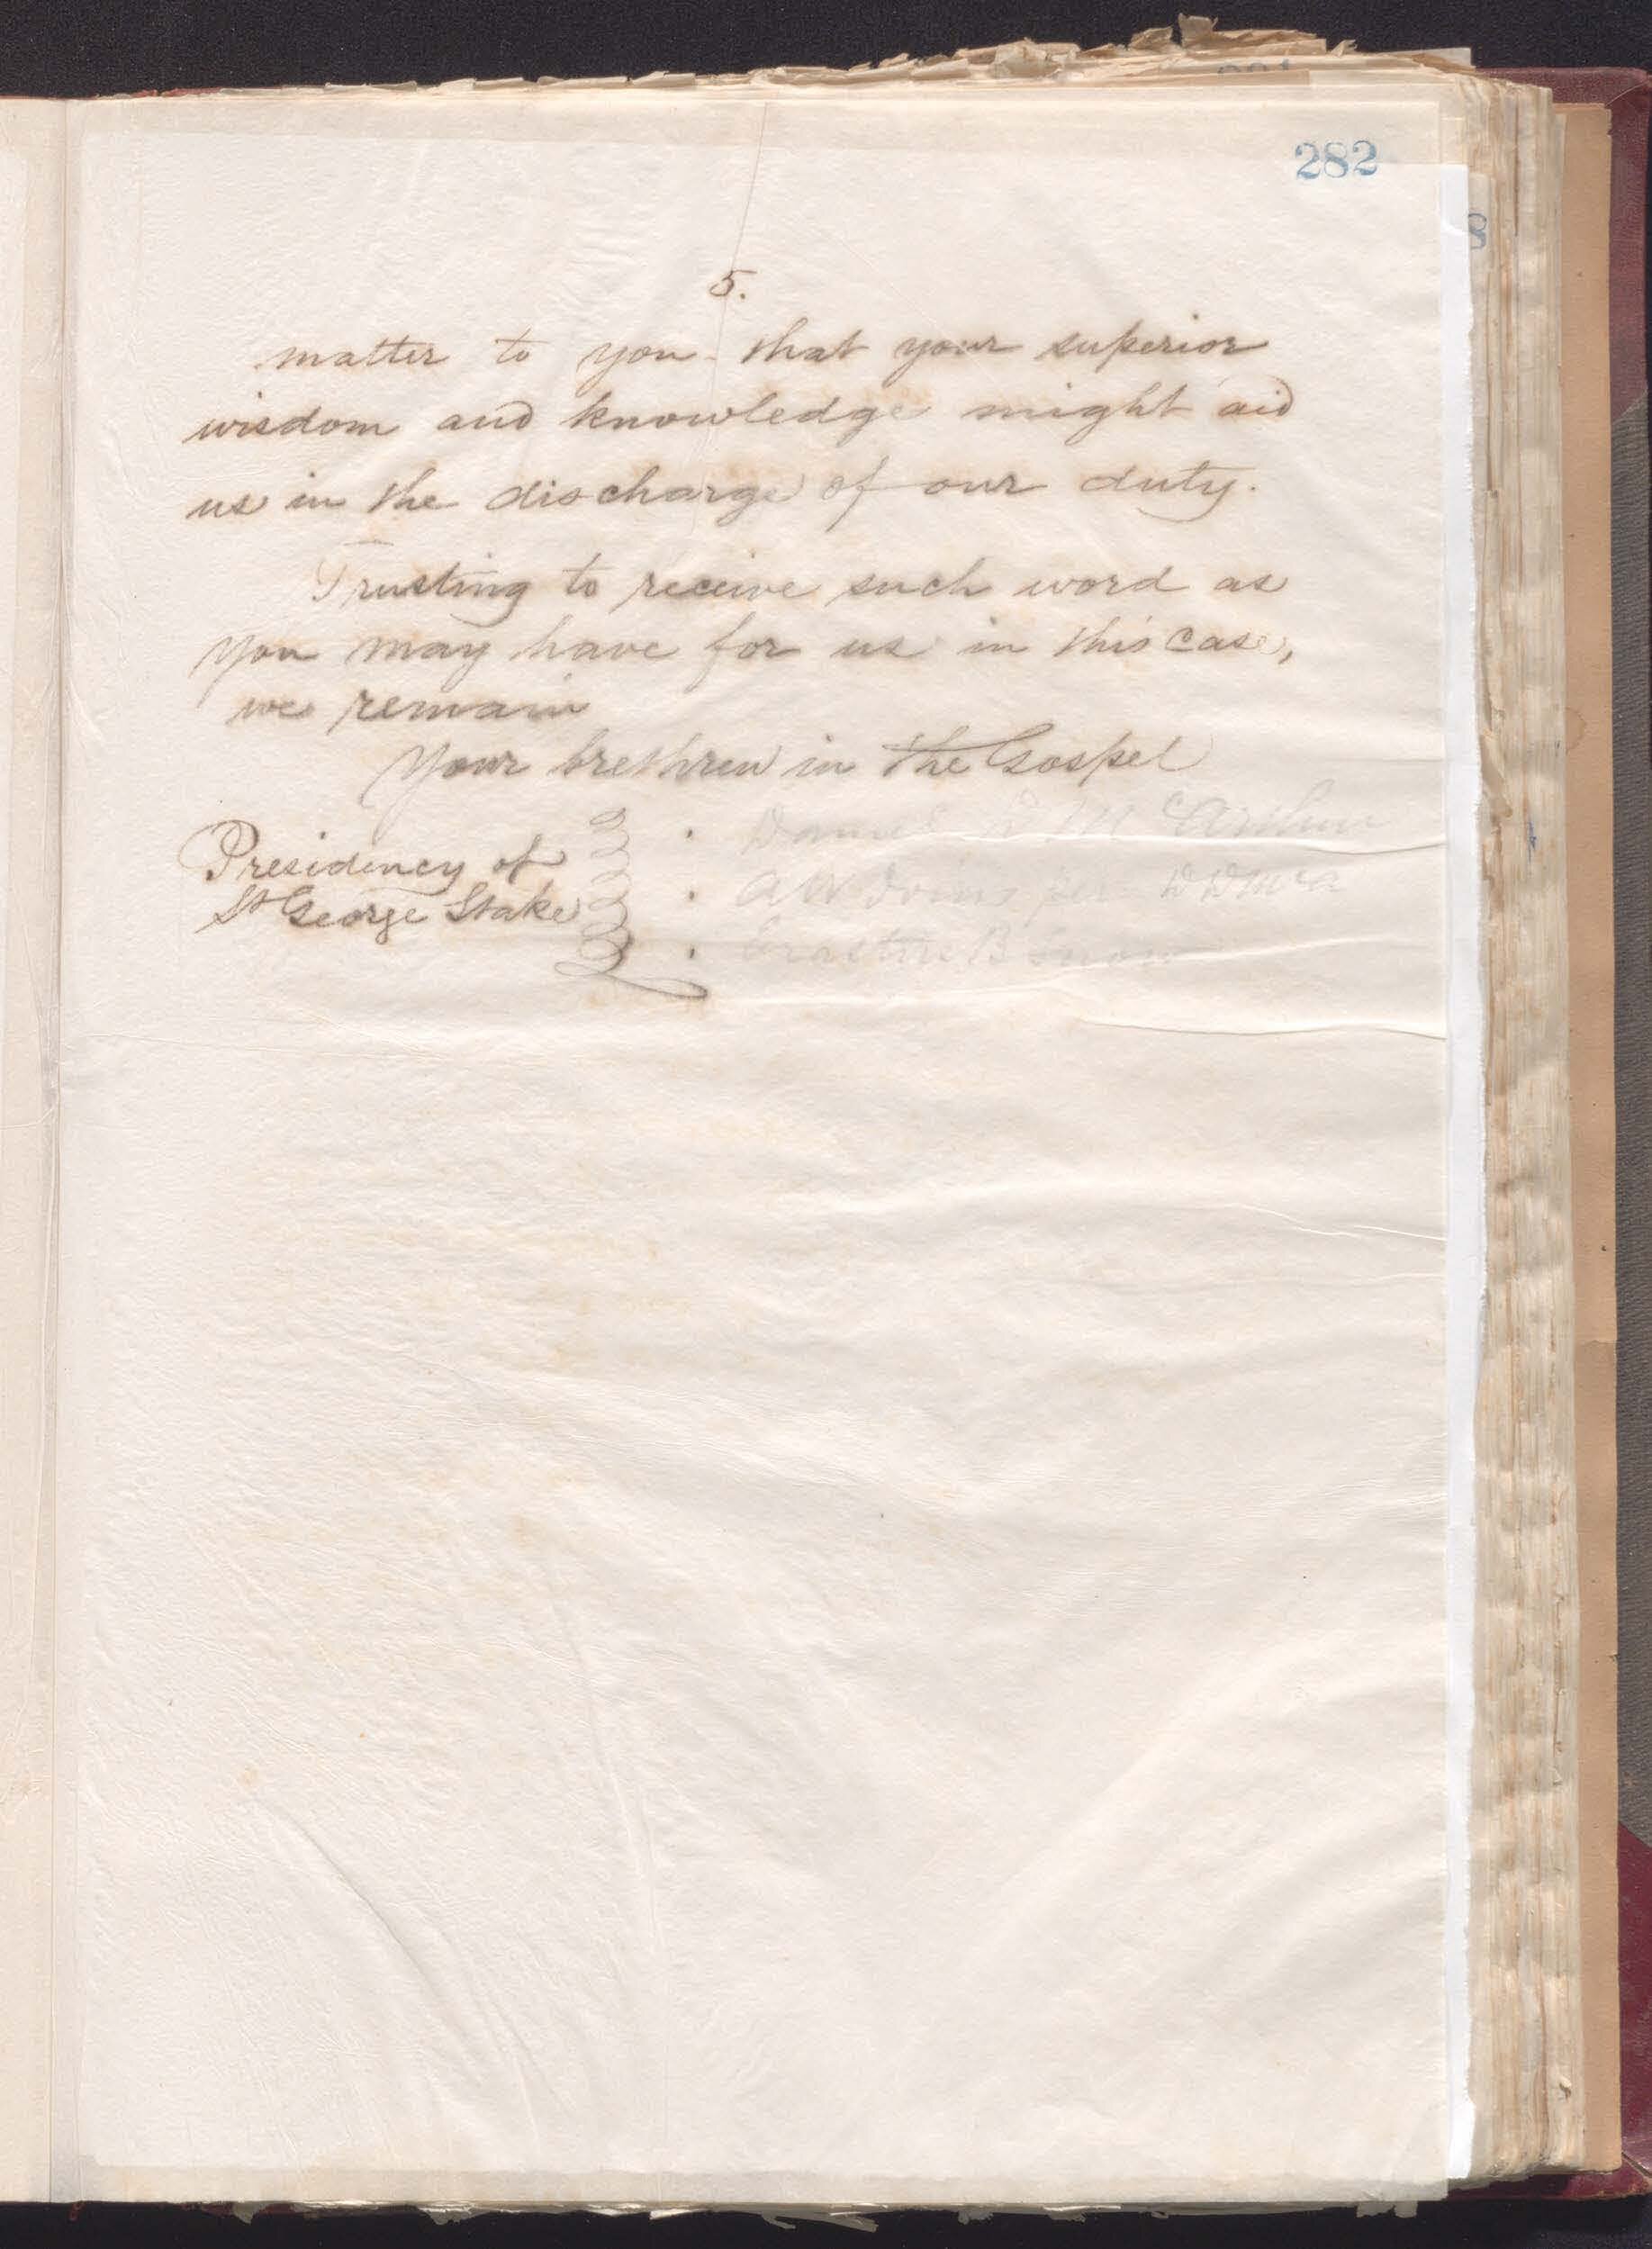 282
5.
matter to you that your superior
wisdom and knowledge might aid
us in the discharge of our duty.
Trusting to receive such word as
you may have for us in this case,
we remain
Your brethren in the Gospel
Presidency of
St George Stake
Daniel D McArthur
A W Ivins per D D McA
Erastus B Snow